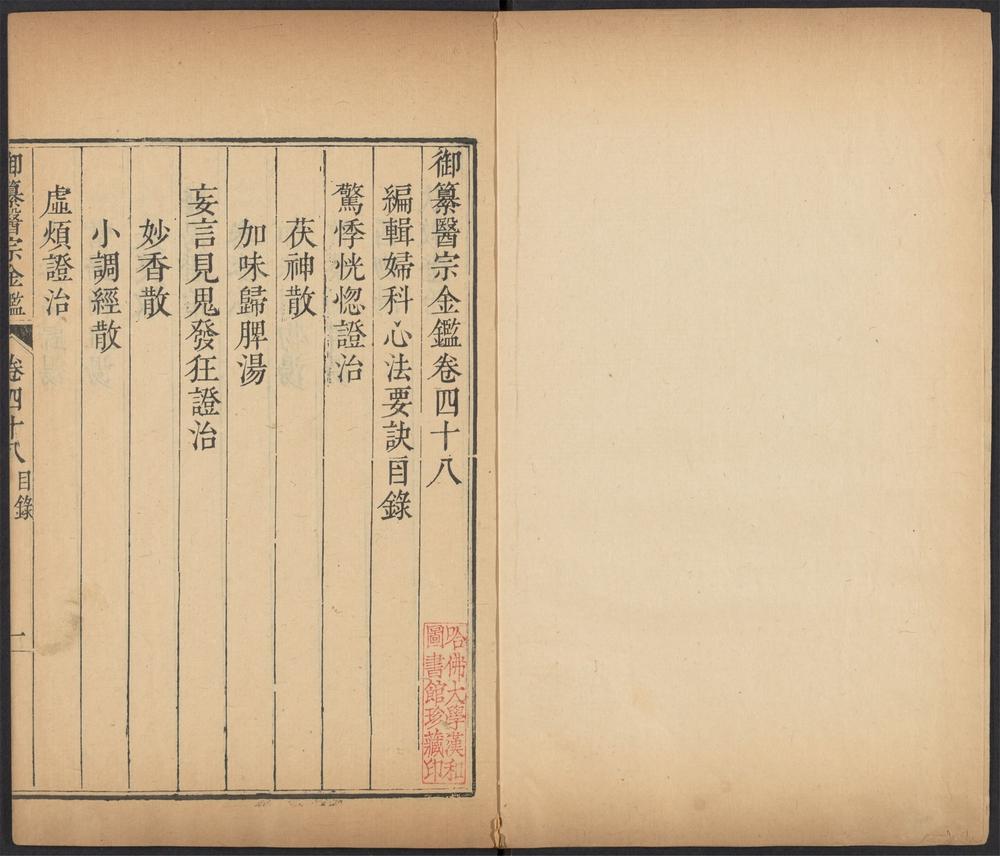 御纂醫宗金鑑卷四十八
編輯婦科心法要訣目錄
驚悸恍惚證治
茯神散
加味歸脾湯
妄言見鬼發狂證治
妙香散
小調經散
虛煩證治
御纂醫宗金鑑
卷四十八
目錄
一
哈佛大學漢和
圖書館珍藏印